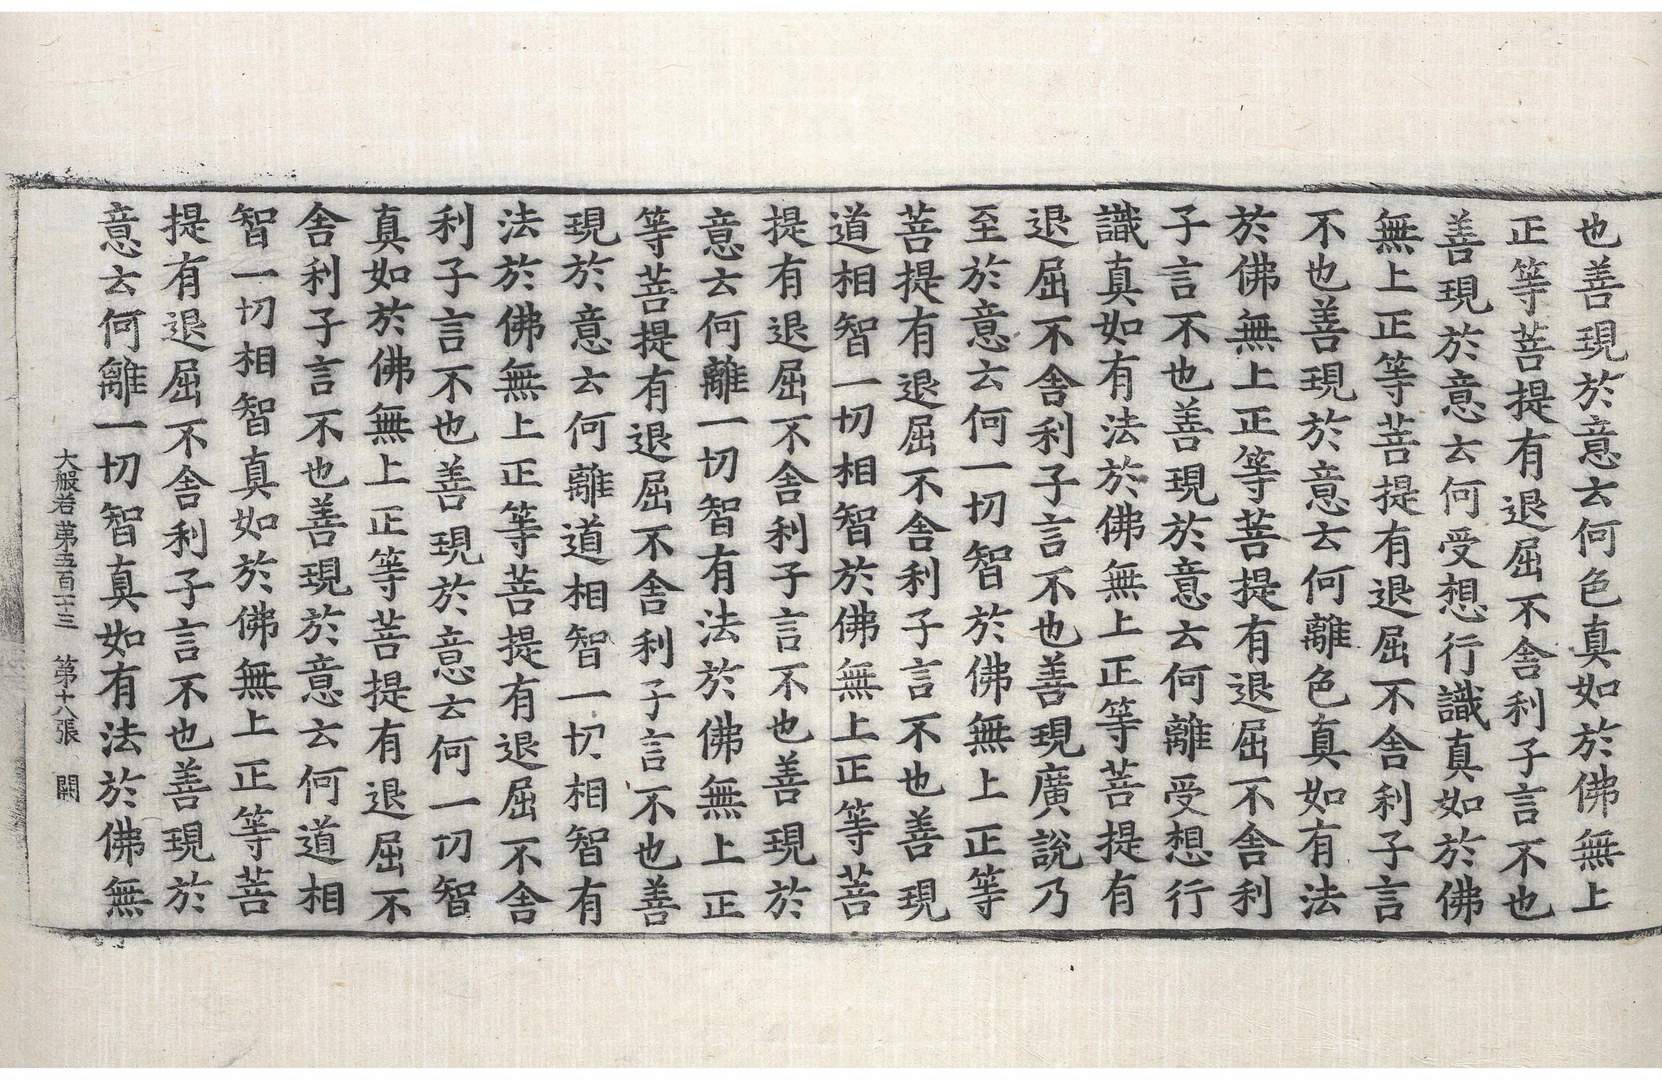 也善現於意云何色真如於佛無上
正等菩提有退屈不舍利子言不也
善現於意云何受想行識真如於佛
無上正等菩提有退屈不舍利子言
不也善現於意云何離色真如有法
於佛無上正等菩提有退屈不舍利
子言不也善現於意云何離受想行
識真如有法於佛無上正等菩提有
退屈不舍利子言不也善現廣說乃
至於意云何一切智於佛無上正等
菩提有退屈不舍利子言不也善現
道相智一切相智於佛無上正等菩
提有退屈不舍利子言不也善現於
意云何離一切智有法於佛無上正
等菩提有退屈不舍利子言不也善
現於意云何離道相智一切相智有
法於佛無上正等菩提有退屈不舍
利子言不也善現於意云何一切智
真如於佛無上正等菩提有退屈不
舍利子言不也善現於意云何道相
智一切相智真如於佛無上正等菩
提有退屈不舍利子言不也善現於
意云何離一切智真如有法於佛無
大般若第五百十三 第十八張 闕